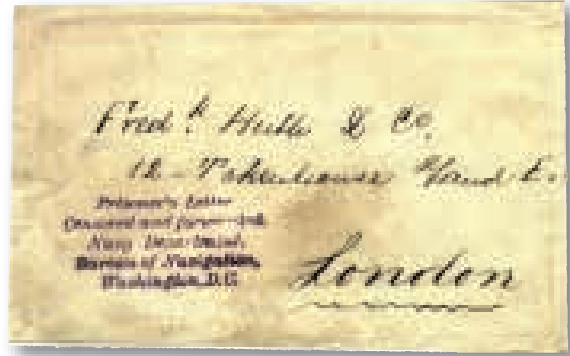 Fred.k Huth & Co.
12 - Tokenhouse Yard E.
Prisoner's Letter
Censored and forwarded.
Navy Department,
Bureau of Navigation,
Washington, D.C.
London